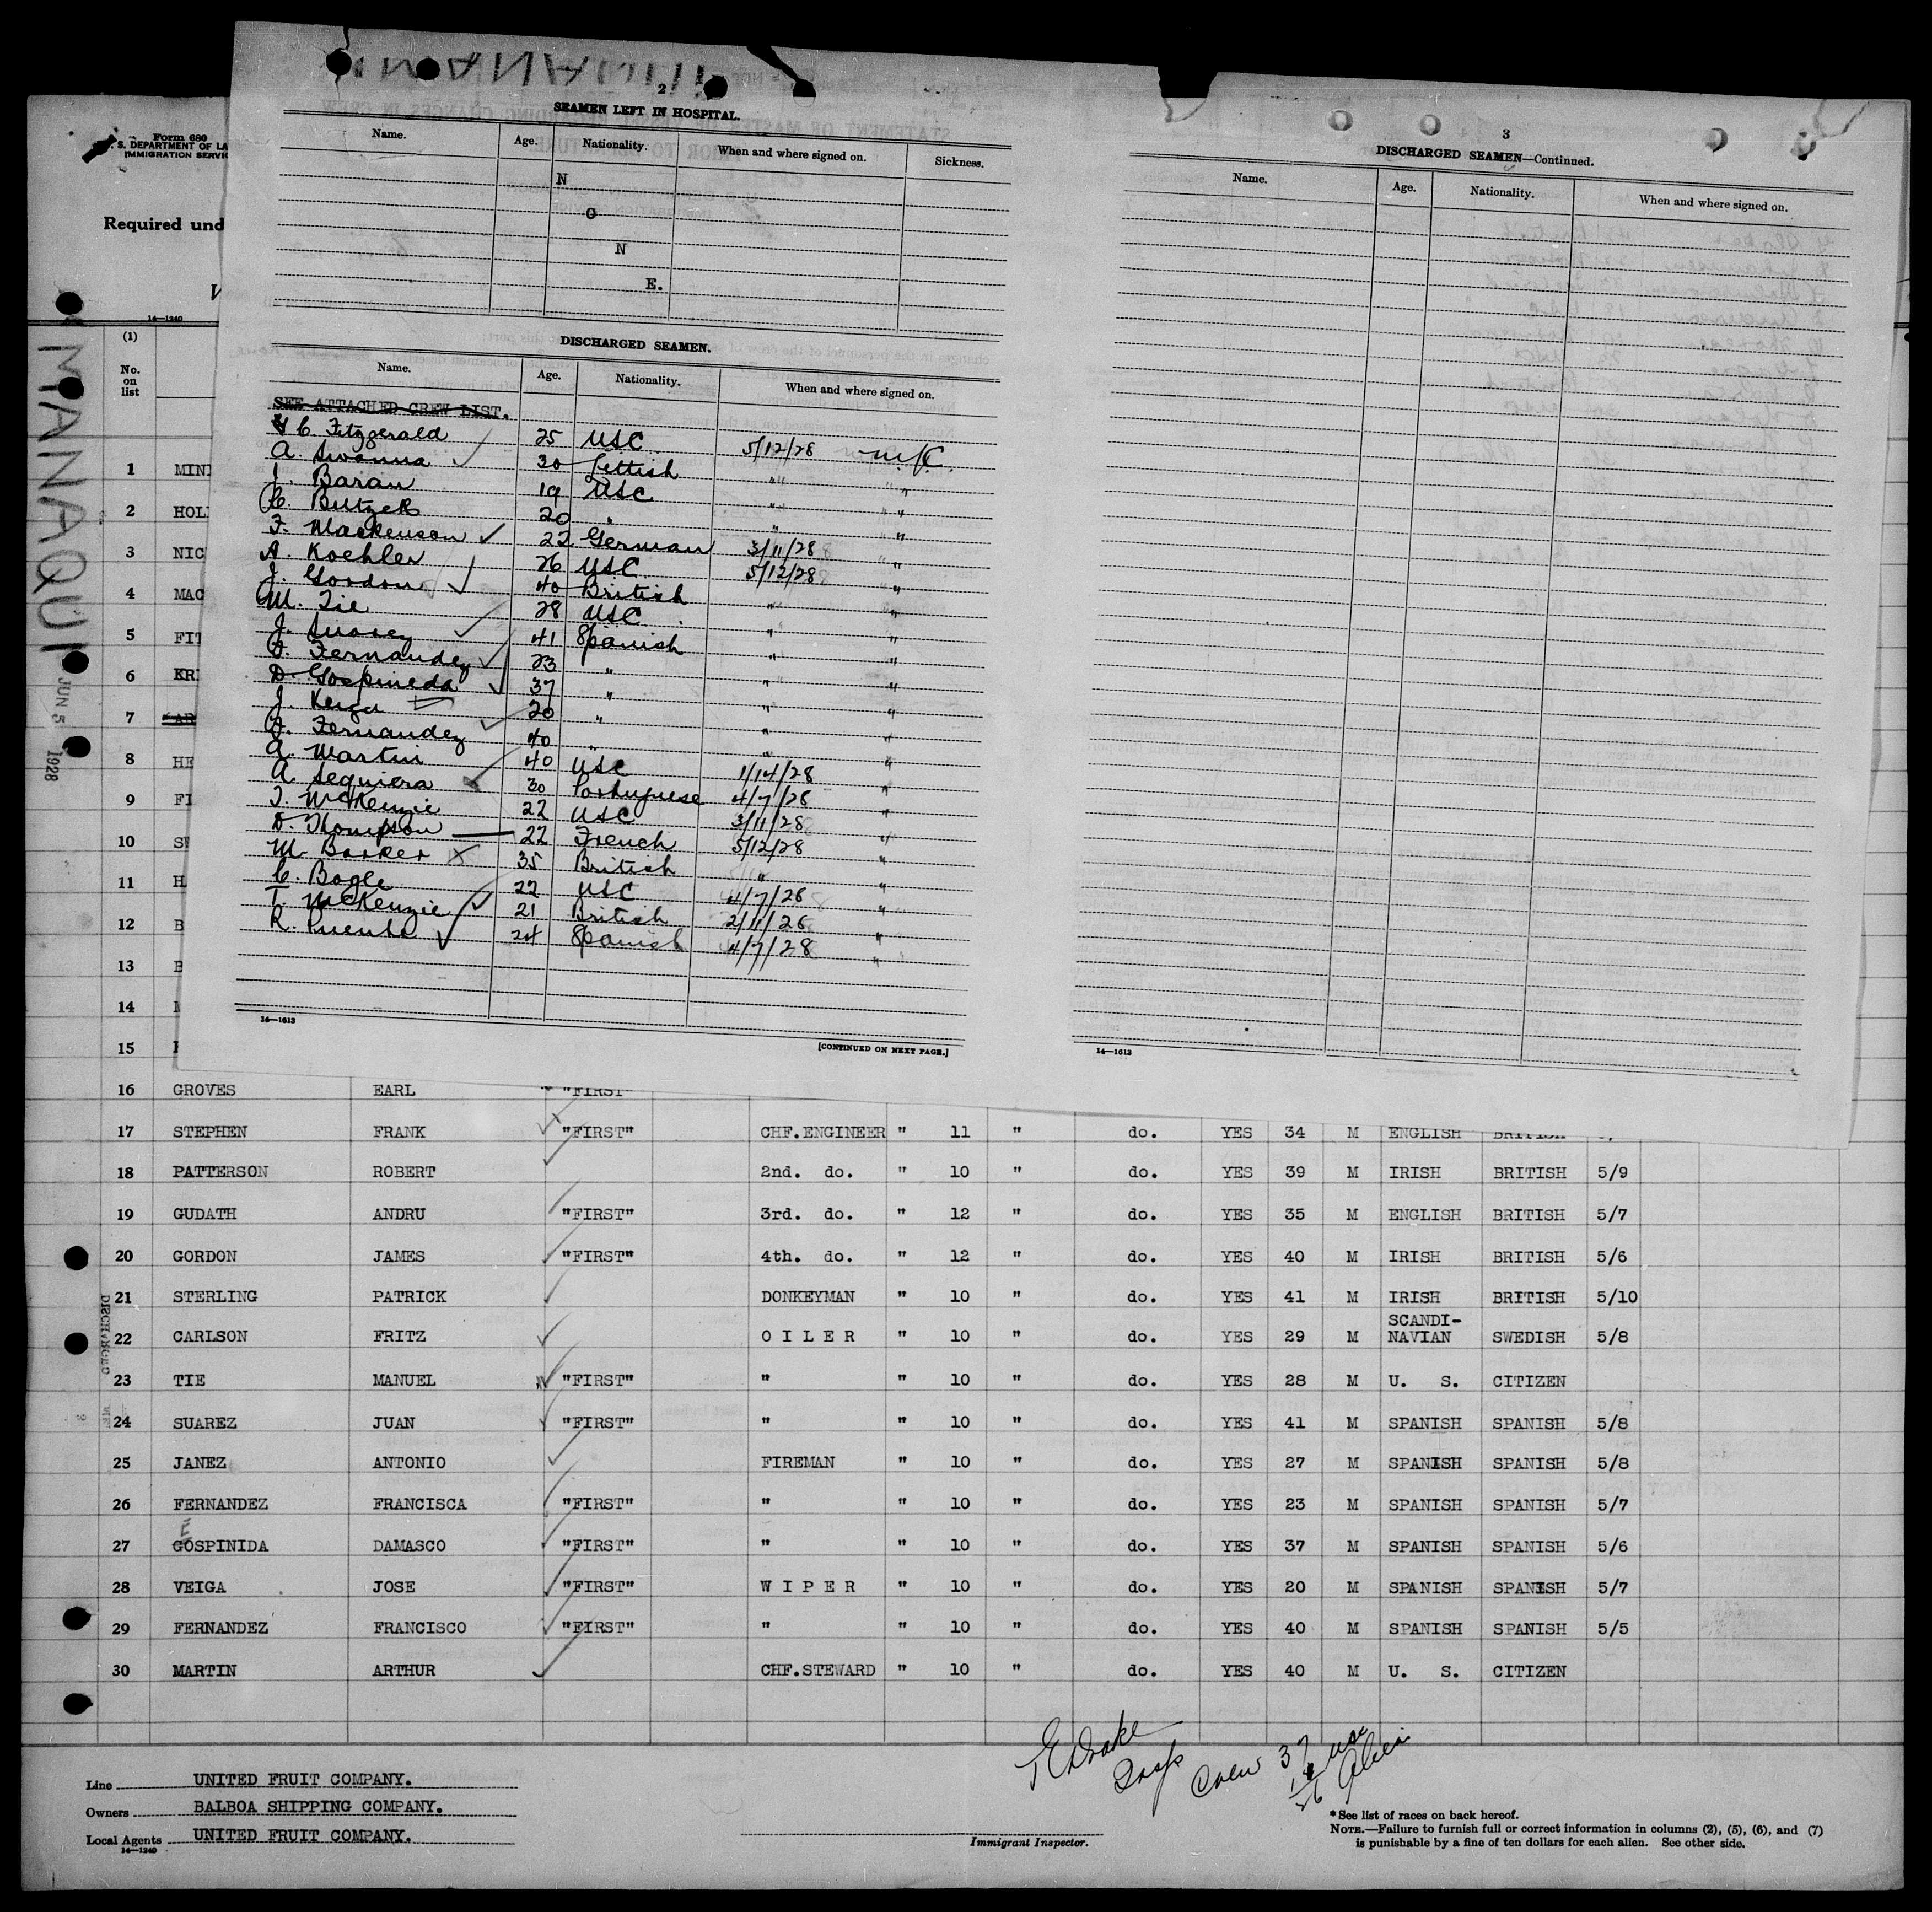 2
SEAMEN LEFT IN HOSPITAL.
Name. Age. Nationality. When and where signed on. Sickness.
N
O
N
E.
DISCHARGED SEAMEN.
Name. Age. Nationality. When and where signed on.
SEE ATTACHED CREW LIST.
C. Fitzgerald 25 USC 5/12/28 N.Y.C.
A. Swanna 30 Lettish " "
J. Baran 19 USC " "
C. Beltzer 20 " " "
F. Mackenson 22 German 3/11/28 "
A. Koehler 26 USC 5/12/28 "
J. Gordon 40 British " "
M. Tie 28 USC " "
J. Suarez 41 Spanish " "
F. Fernandez 23 " " "
D. Gospineda 37 " " "
J. Veiga 20 " " "
F. Fernandez 40 " " "
A. Martin 40 USC 1/14/28 "
A. Sequiera 30 Portuguese 4/7/28 "
T. McKenzie 22 USC 3/11/28 "
D. Thompson 22 French 5/12/28 "
M. Barker 35 British " "
C. Bogle 22 USC 4/7/28 "
T. McKenzie 21 British 2/11/28 "
R. Puenta 24 Spanish 4/7/28 "
14—1613
[CONTINUED ON NEXT PAGE.]
3
DISCHARGED SEAMEN—Continued.
Name. Age. Nationality. When and where signed on.
14—1613
Form 680
S. DEPARTMENT OF LA
IMMIGRATION SERVIC
Required und
V
14—1240
MANAQUI
JUN 5 1928
(1)
No. on list
1 MINI
2 HOL
3 NIC
4 MAC
5 FIT
6 KR
7 AR
8 HE
9 FI
10 SW
11 H
12 B
13 B
14
15
16 GROVES EARL "FIRST"
17 STEPHEN FRANK "FIRST" CHF.ENGINEER " 11 " do. YES 34 M ENGLISH BRITISH
18 PATTERSON ROBERT 2nd. do. " 10 " do. YES 39 M IRISH BRITISH 5/9
19 GUDATH ANDRU "FIRST" 3rd. do. " 12 " do. YES 35 M ENGLISH BRITISH 5/7
20 GORDON JAMES "FIRST" 4th. do. " 12 " do. YES 40 M IRISH BRITISH 5/6
21 STERLING PATRICK DONKEYMAN " 10 " do. YES 41 M IRISH BRITISH 5/10
DISCHARGED
22 CARLSON FRITZ OILER " 10 " do. YES 29 M SCANDI-NAVIAN SWEDISH 5/8
23 TIE MANUEL "FIRST" " " 10 " do. YES 28 M U. S. CITIZEN
24 SUAREZ JUAN "FIRST" " " 10 " do. YES 41 M SPANISH SPANISH 5/8
25 JANEZ ANTONIO FIREMAN " 10 " do. YES 27 M SPANISH SPANISH 5/8
26 FERNANDEZ FRANCISCA "FIRST" " " 10 " do. YES 23 M SPANISH SPANISH 5/7
E
27 GOSPINIDA DAMASCO "FIRST" " " 10 " do. YES 37 M SPANISH SPANISH 5/6
28 VEIGA JOSE "FIRST" WIPER " 10 " do. YES 20 M SPANISH SPANISH 5/7
29 FERNANDEZ FRANCISCO "FIRST" " " 10 " do. YES 40 M SPANISH SPANISH 5/5
30 MARTIN ARTHUR CHF.STEWARD " 10 " do. YES 40 M U. S. CITIZEN
Line UNITED FRUIT COMPANY.
Owners BALBOA SHIPPING COMPANY.
Local Agents UNITED FRUIT COMPANY.
14—1240
Drake
Insp
Crew 37
Immigrant Inspector.
*See list of races on back hereof.
NOTE.—Failure to furnish full or correct information in columns (2), (5), (6), and (7)
is punishable by a fine of ten dollars for each alien. See other side.